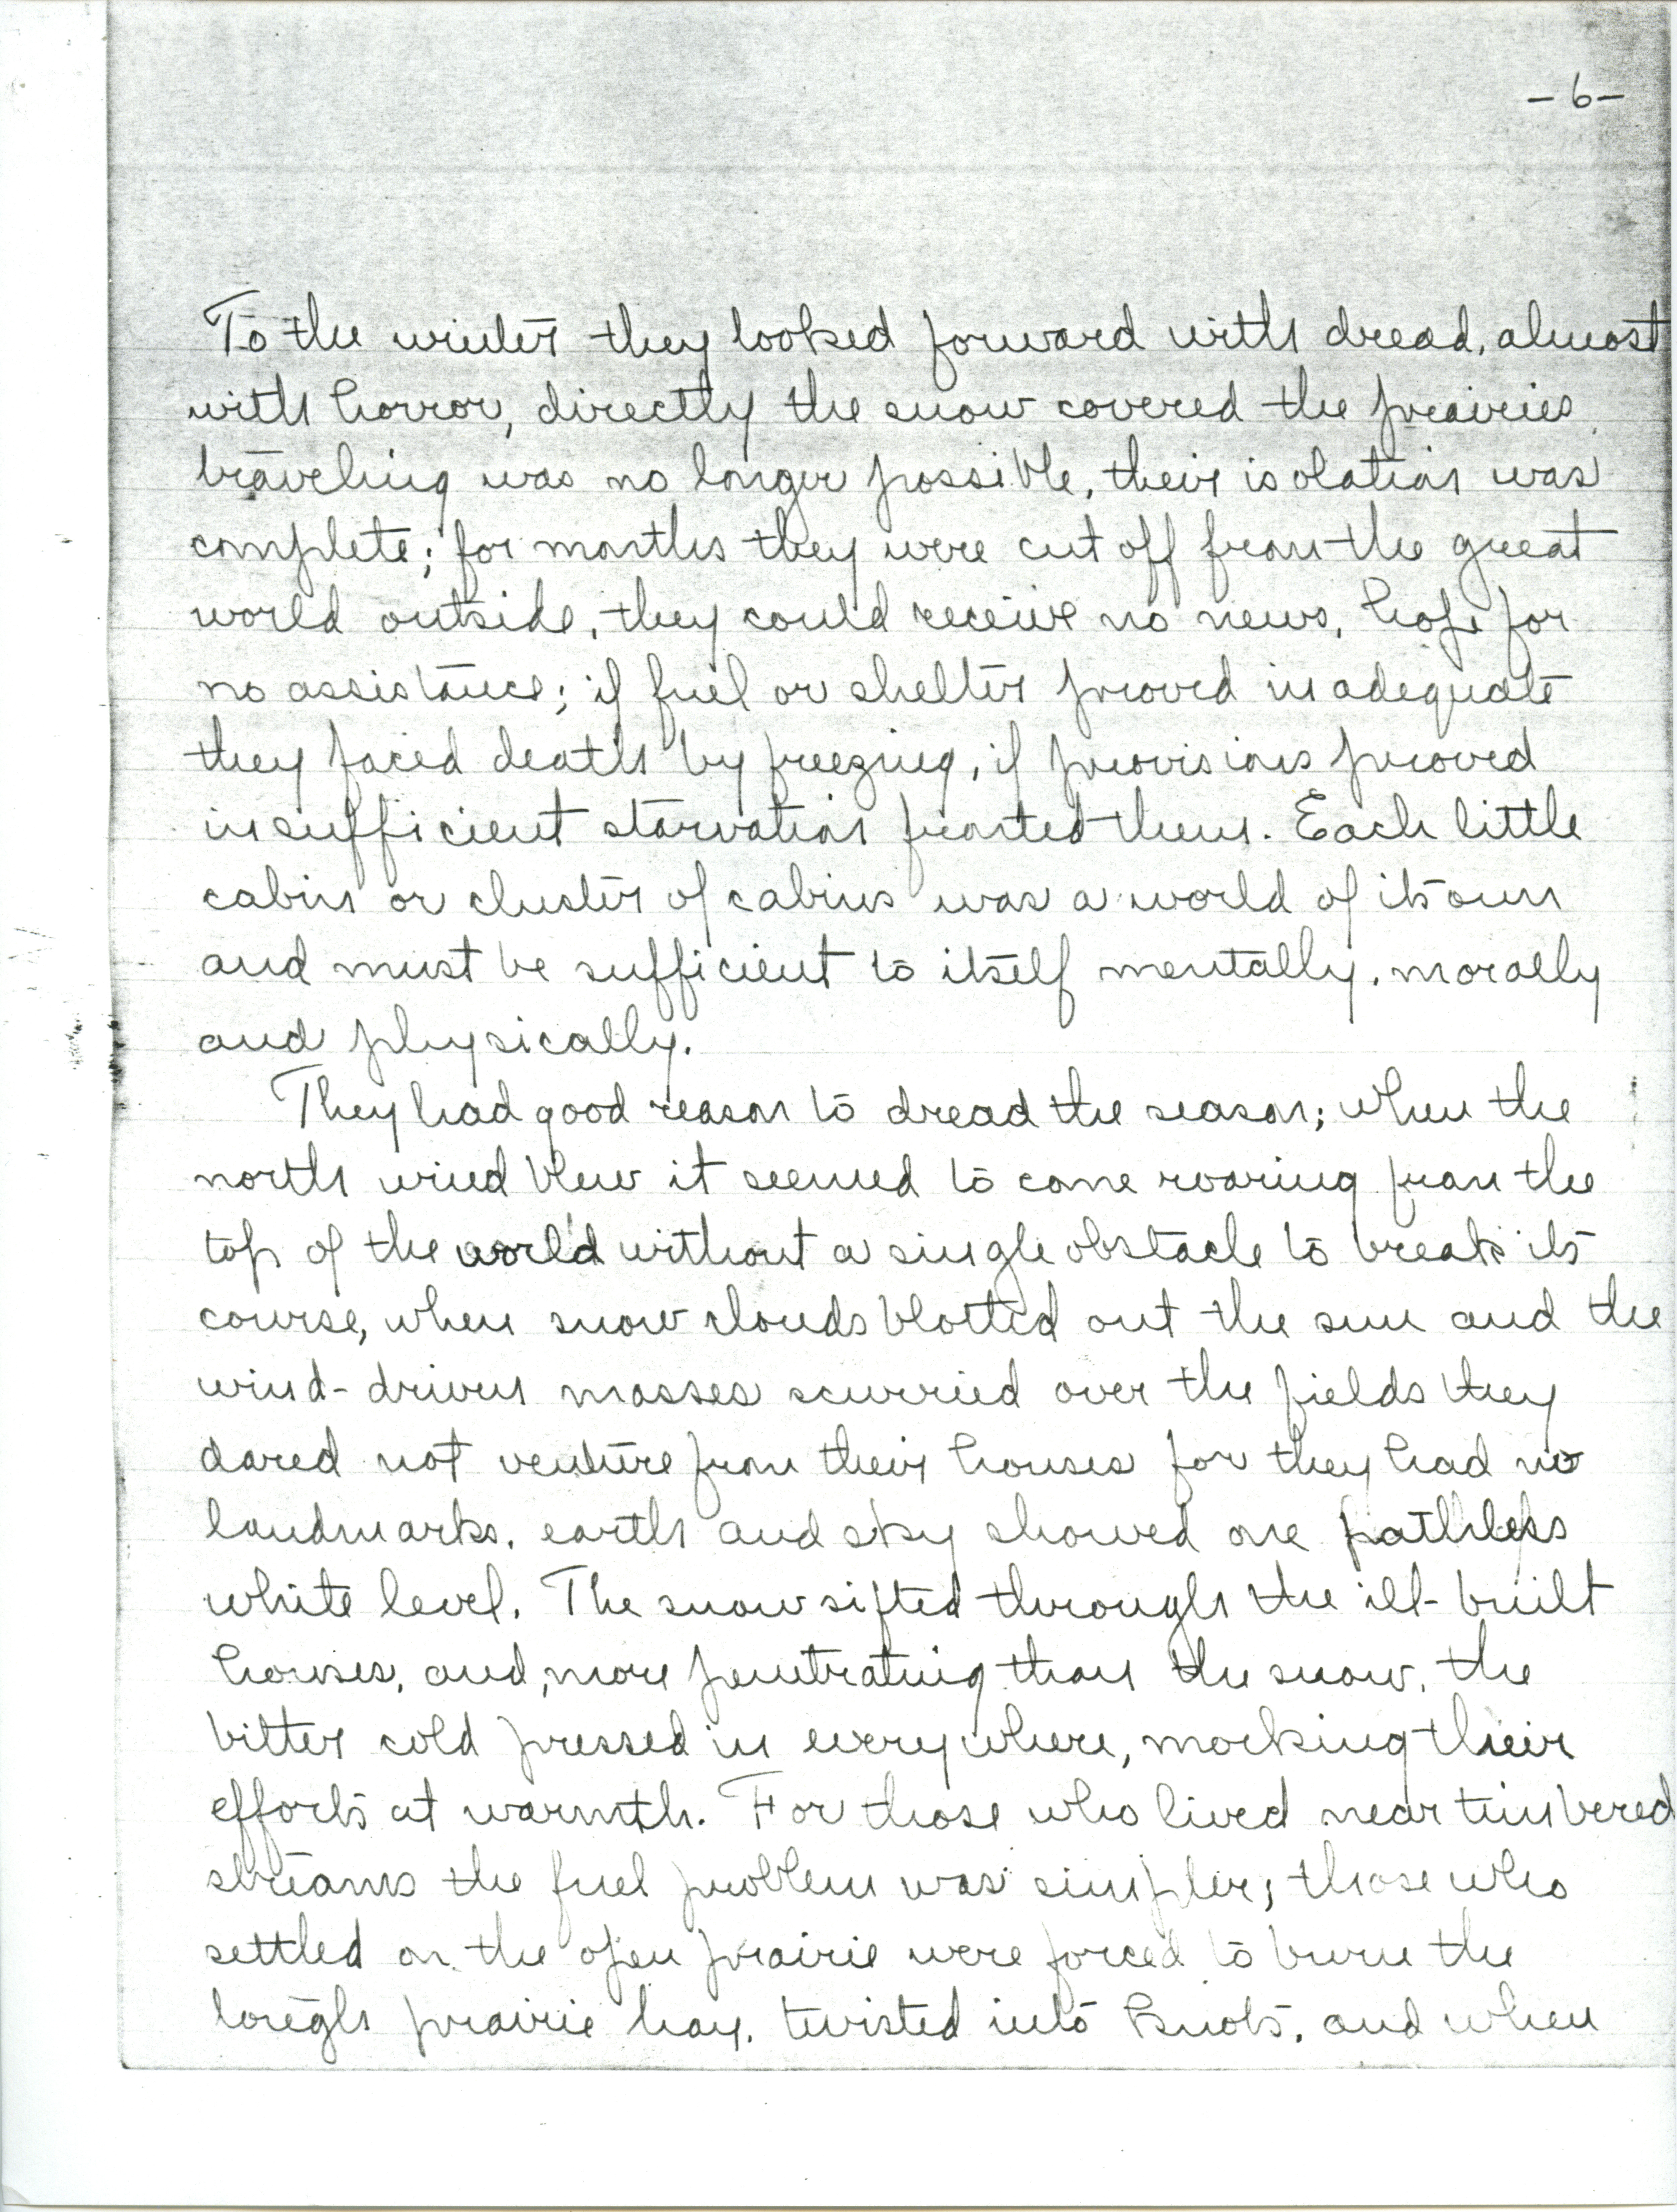 -6-
To the winter they looked forward with dread, almost
with horror, directly the snow covered the prairies
traveling was no longer possible, their isolation was
complete; for months they were cut off from the great
world outside, they could receive no news, hope for
no assistance; if fuel or shelter proved inadequate
they faced death by freezing, if provisions proved
insufficient starvation fronted them. Each little
cabin or cluster of cabins was a world of its own
and must be sufficient to itself mentally, morally
and physically.
They had good reason to dread the season; when the
north wind blew it seemed to come roaring from the
top of the world without a single obstacle to break its
course, when snow clouds blotted out the sun and the
wind-driven masses scurried over the fields they
dared not venture from their houses for they had no
landmarks, earth and sky showed one pathless
white level. The snow sifted through the ill-built
houses, and, more penetrating than the snow, the
bitter cold pressed in everywhere, mocking their
efforts at warmth. For those who lived near timbered
streams the fuel problem was simpler; those who
settled on the open prairie were forced to burn the
prairie hay, twisted into knots, and when